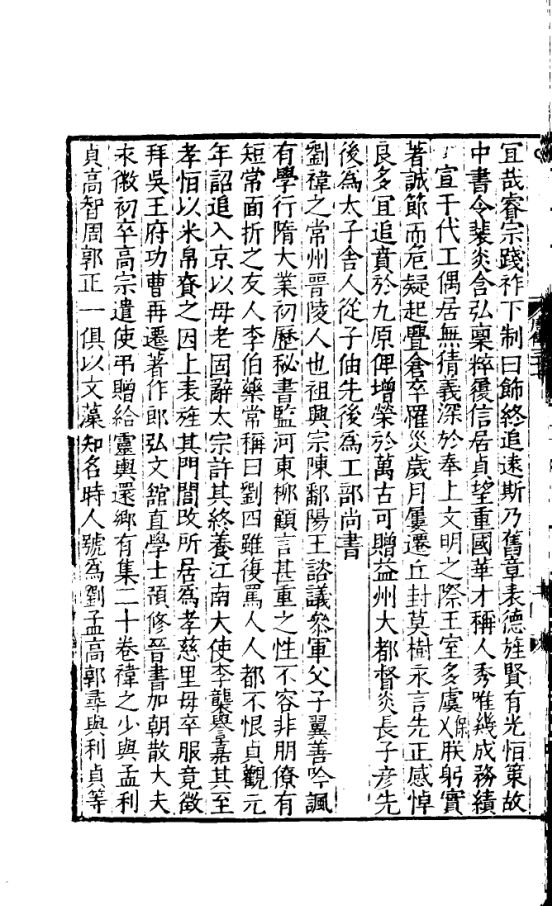 宜哉睿宗踐祚下制曰飾終追遠斯乃舊章表德旌賢有光恒策故
中書令裴炎含弘稟粹履信居貞望重國華才稱人秀唯幾成務績
宣于代工偶居無猜義深於奉上文明之際王室多虞保乂朕躬實
著誠節而危疑起釁倉卒罹災歲月屢遷丘封莫樹永言先正感悼
良多宜追賁於九原俾增榮於萬古可贈益州大都督炎長子彥先
後為太子舍人從子伷先後為工部尚書
劉禕之常州晉陵人也祖興宗陳鄱陽王諮議參軍父子翼善吟諷
有學行隋大業初歷秘書監河東柳顧言甚重之性不容非朋僚有
短常面折之友人李伯藥常稱曰劉四雖復罵人人都不恨貞觀元
年詔追入京以母老固辭太宗許其終養江南大使李襲譽嘉其至
孝恒以米帛賚之因上表旌其門閭改所居為孝慈里母卒服竟徵
拜吳王府功曹再遷著作郎弘文館直學士預修晉書加朝散大夫
永徽初卒高宗遣使弔贈給靈輿還鄉有集二十卷禕之少與孟利
貞高智周郭正一俱以文藻知名時人號為劉孟高郭尋與利貞等